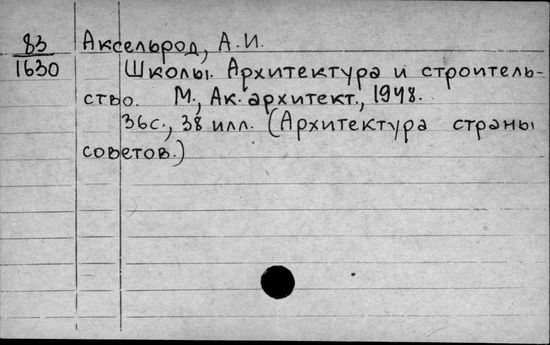 83 Аксельрод, А.И.
1630 Школы. Архитектура и строитель-
ство. М., Ак. архитект., 1948.
36с., 38 илл. (Архитектура страны
советов.)